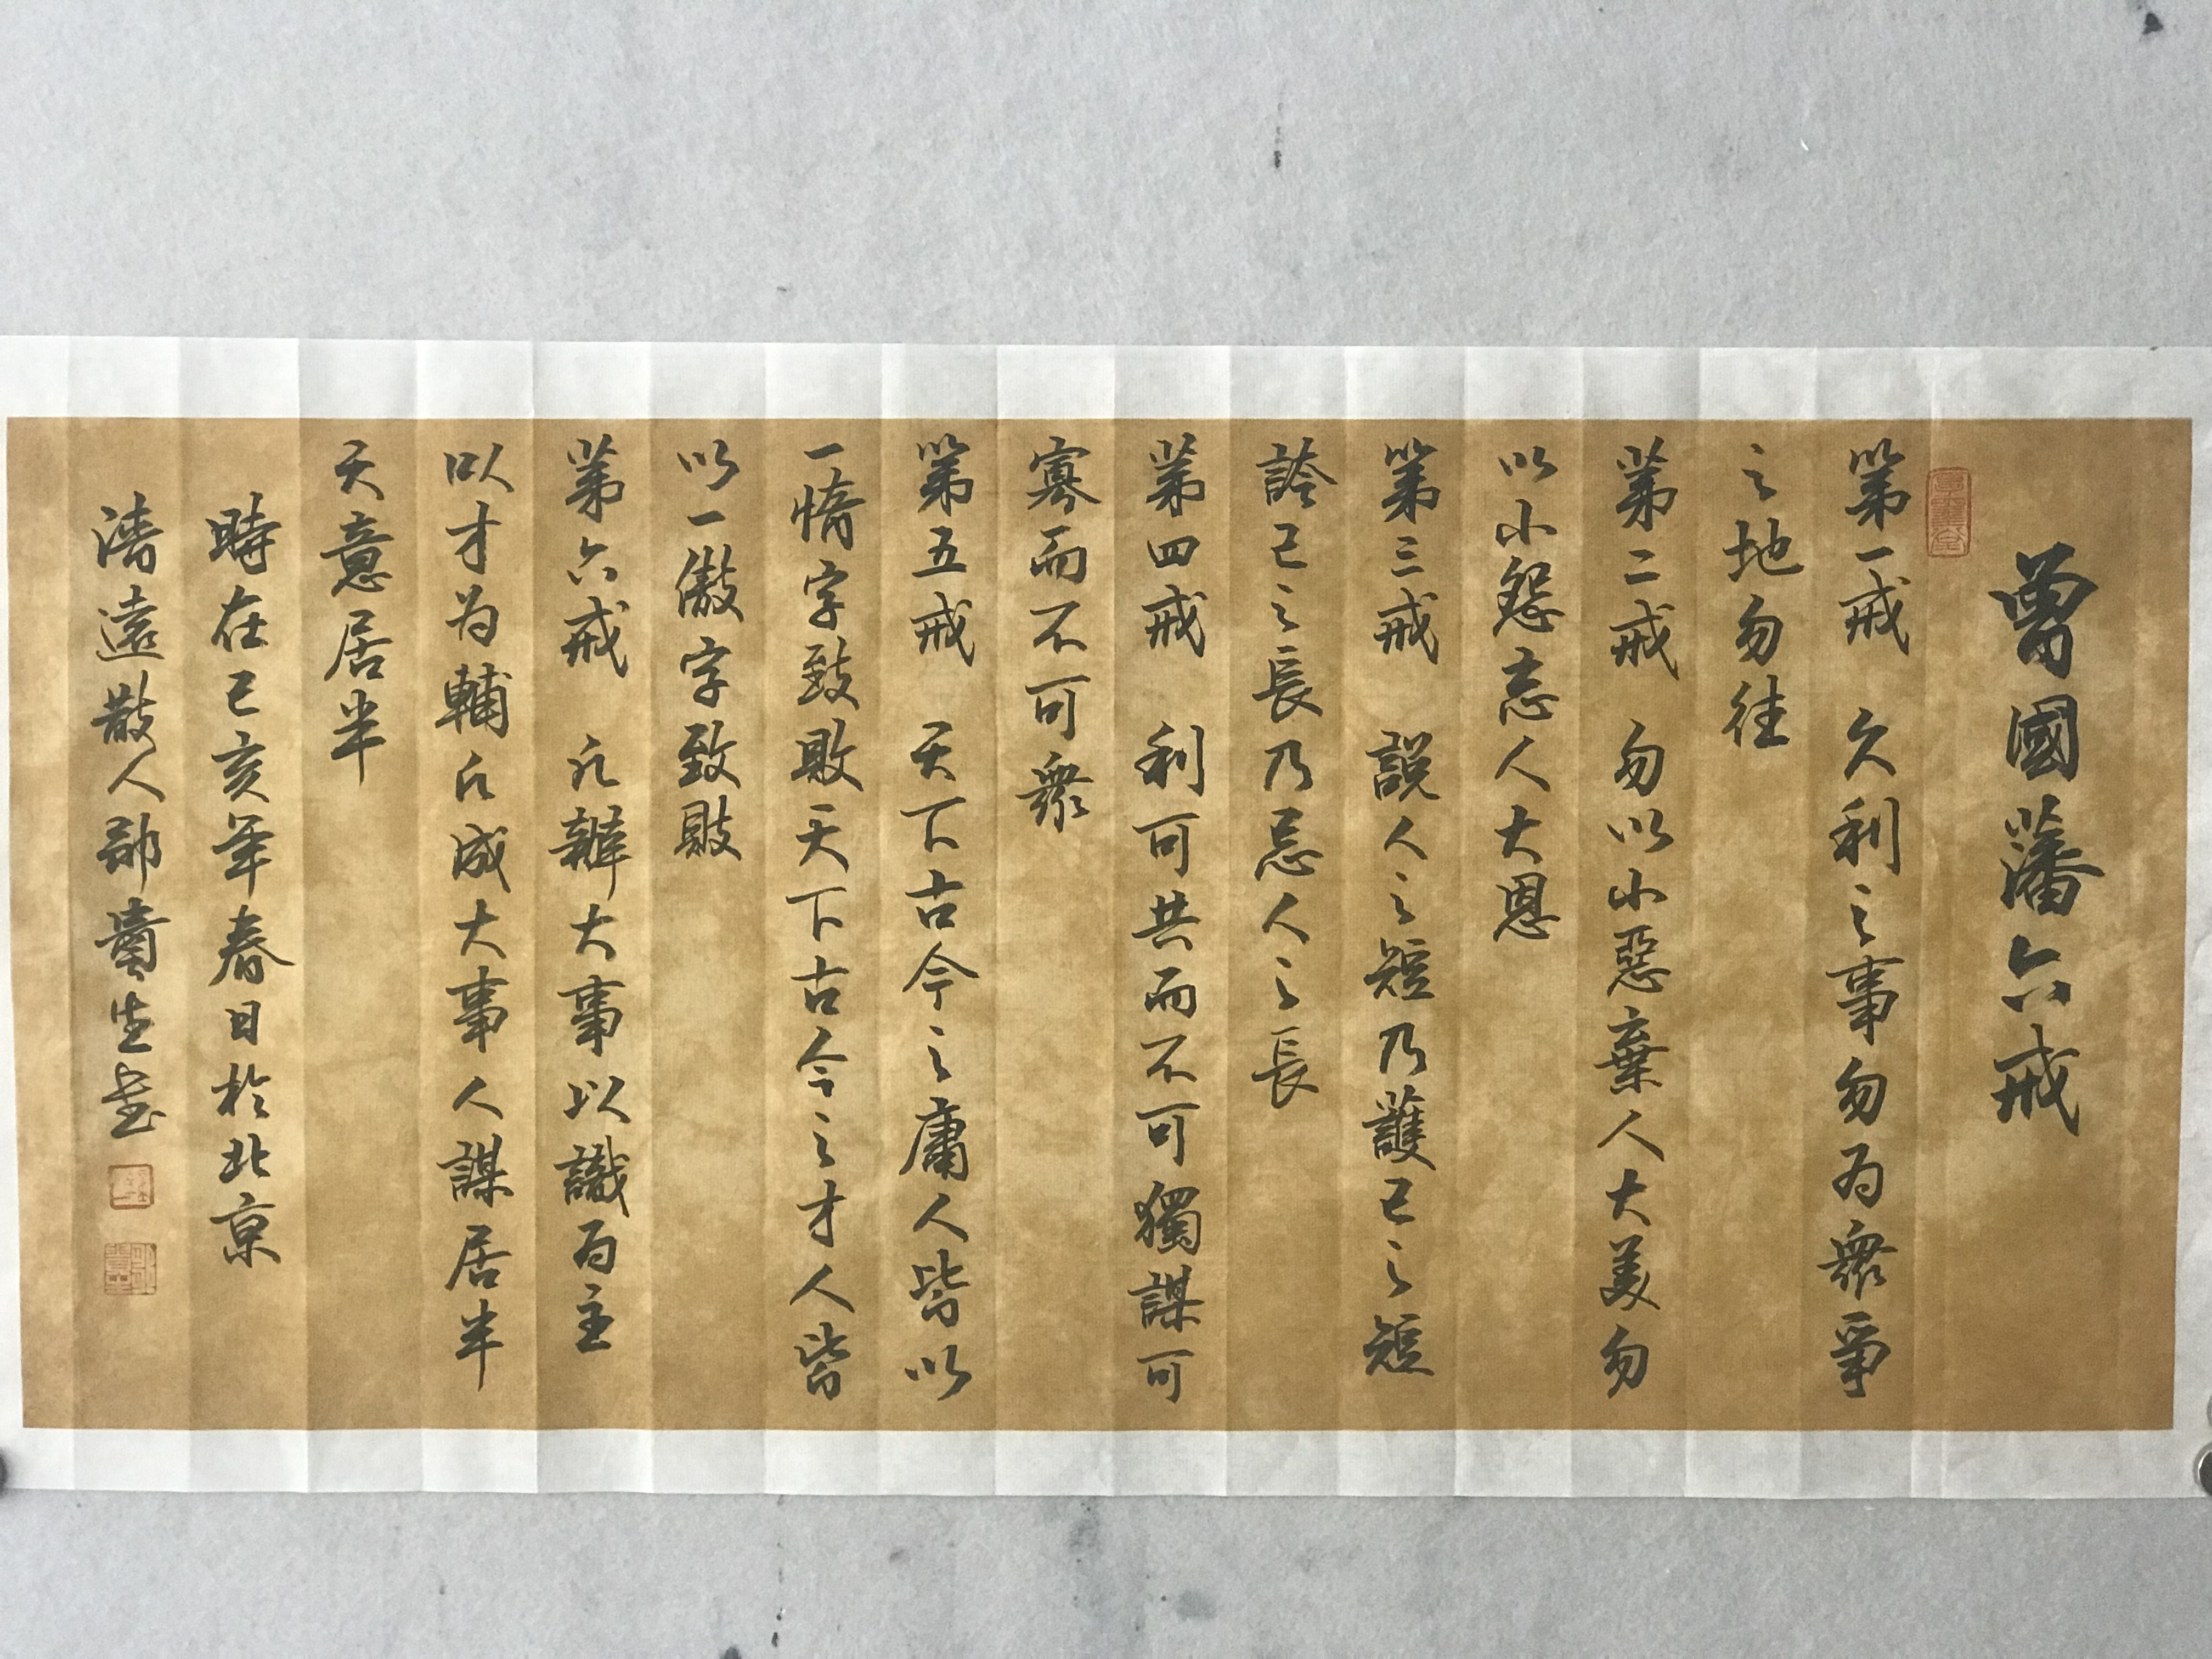 曾國藩六戒
第一戒 久利之事勿為衆爭
之地勿往
第二戒 勿以小惡棄人大美勿
以小怨忘人大恩
第三戒 說人之短乃護己之短
誇己之長乃忌人之長
第四戒 利可共而不可獨謀可
寡而不可衆
第五戒 天下古今之庸人皆以
一惰字致敗天下古今之才人皆
以一傲字致敗
第六戒 凡辦大事以識為主
以才為輔凡成大事人謀居半
天意居半
時在己亥年春日於北京
清遠散人郡貴生書